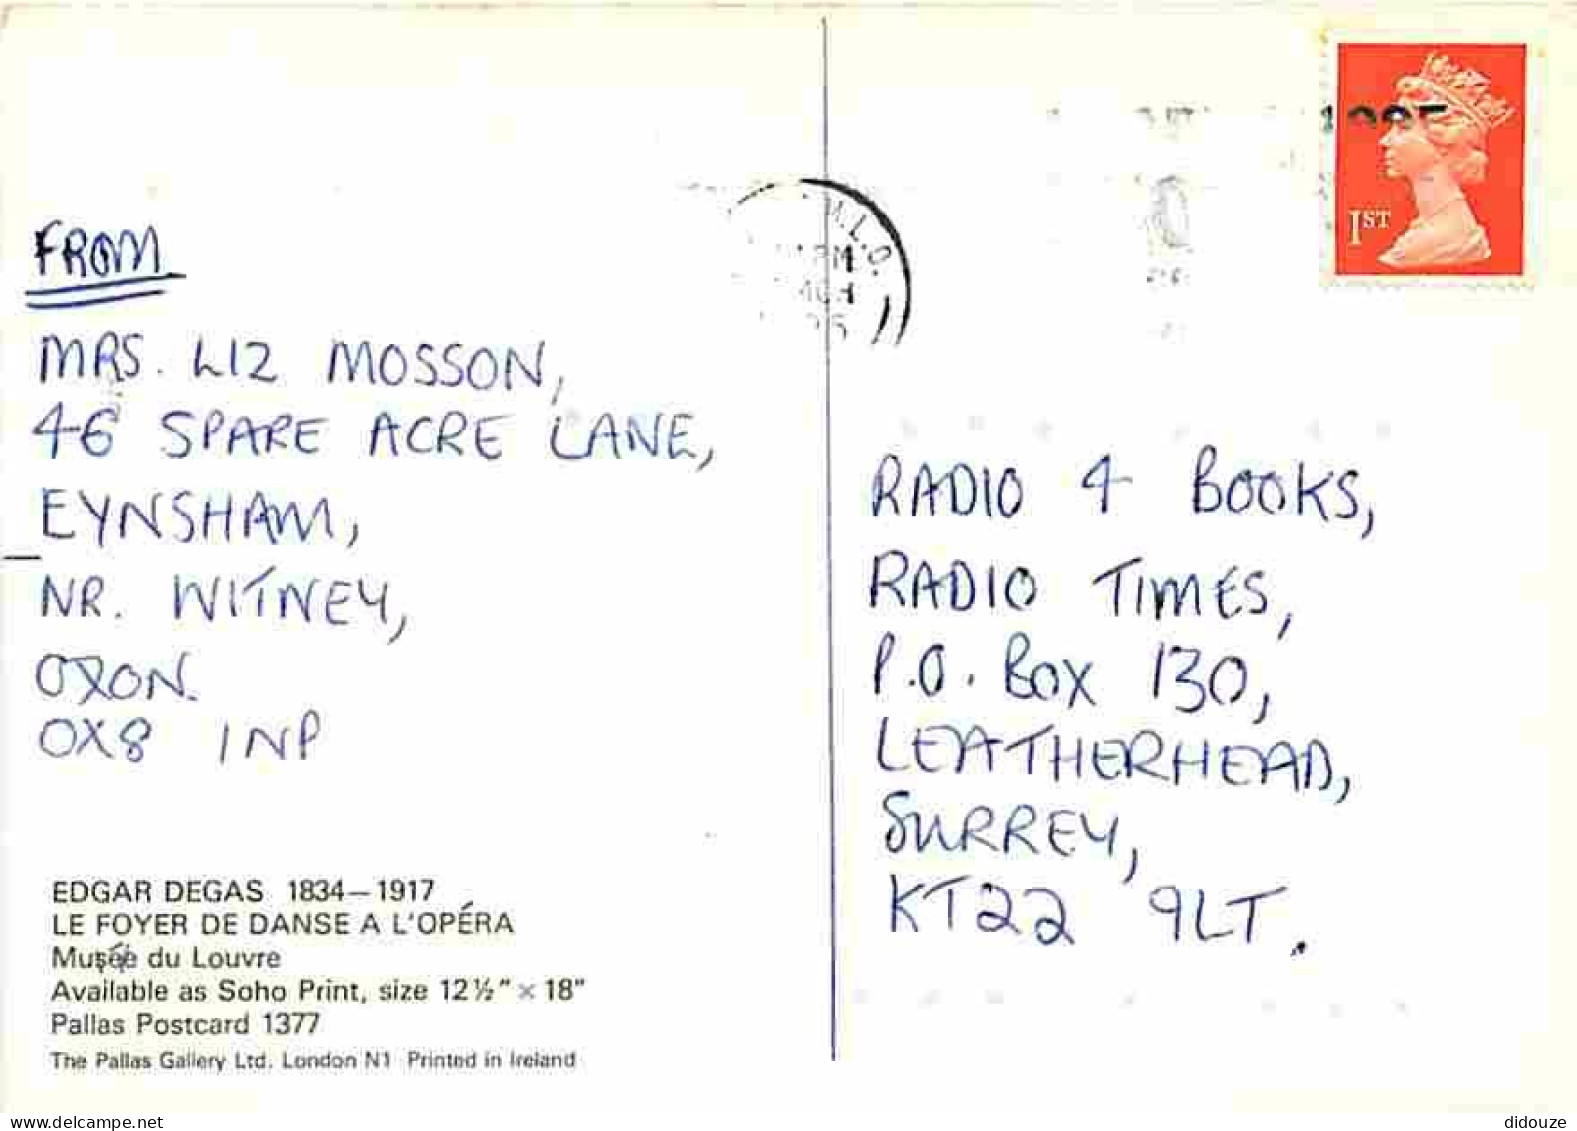 FROM
MRS. LIZ MOSSON,
46 SPARE ACRE LANE,
EYNSHAM,
NR. WITNEY,
OXON.
OX8 1NP
EDGAR DEGAS 1834–1917
LE FOYER DE DANSE A L'OPÉRA
Musée du Louvre
Available as Soho Print, size 12½" × 18"
Pallas Postcard 1377
The Pallas Gallery Ltd. London N1 Printed in Ireland
M.L.O.
PM
1ST
RADIO 4 BOOKS,
RADIO TIMES,
P.O. BOX 130,
LEATHERHEAD,
SURREY,
KT22 9LT.
delcampe.net
didouze